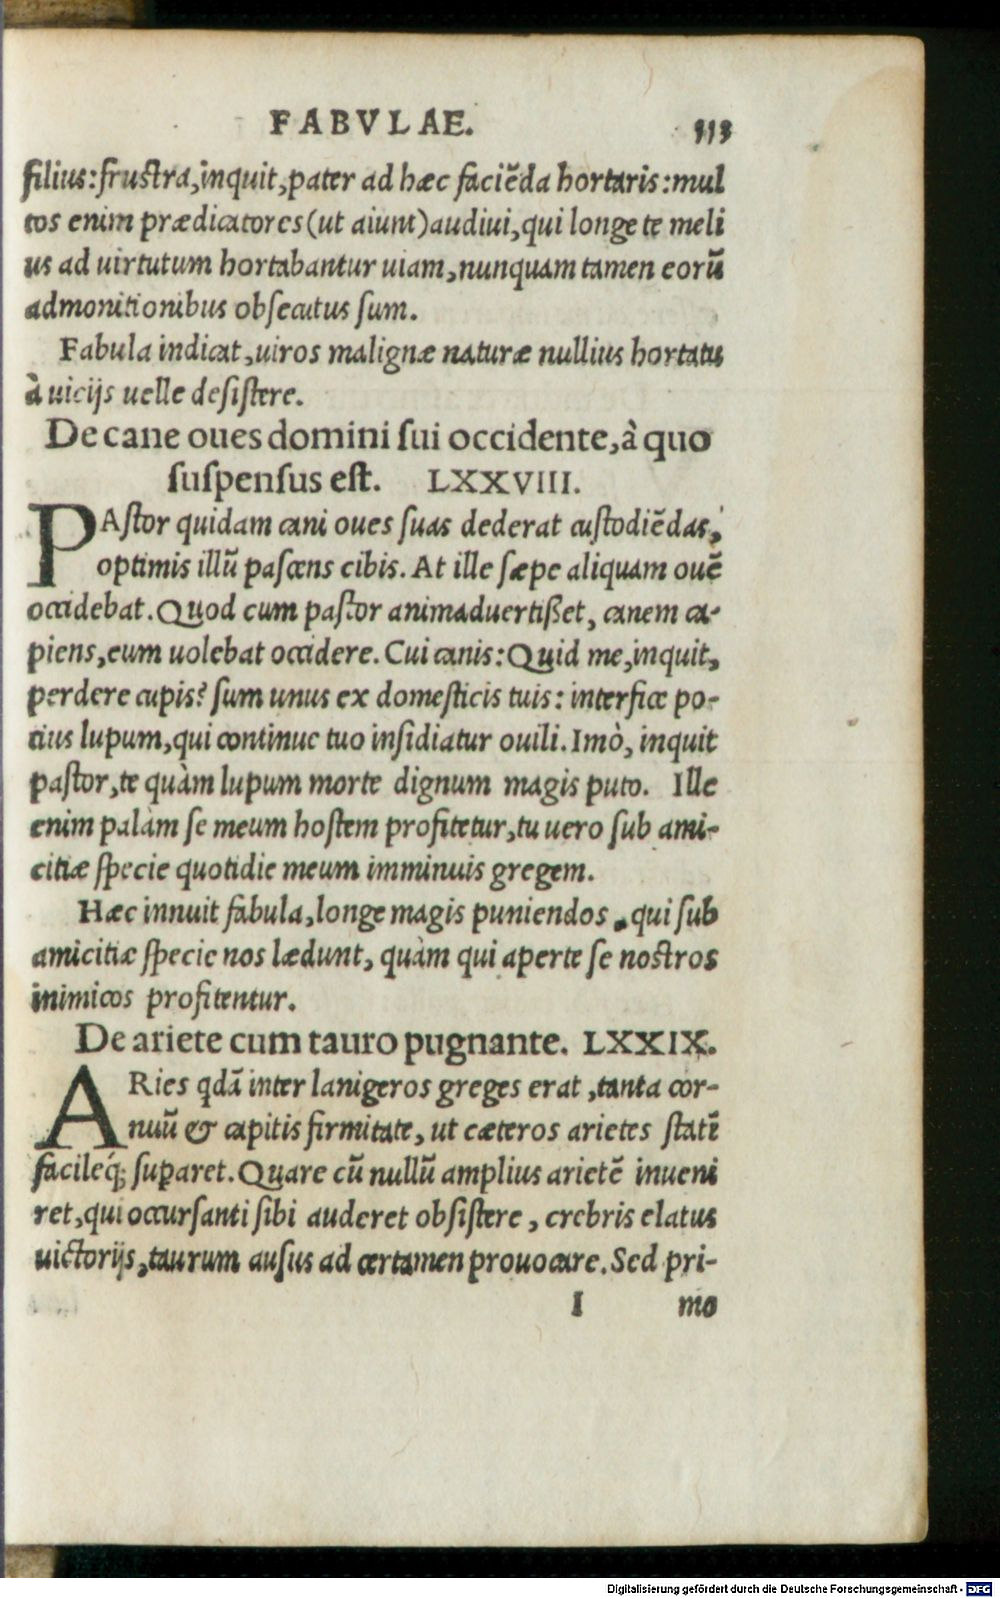 FABVLAE. 113
filius: frustra, inquit, pater ad hæc faciẽda hortaris: mul
tos enim prædicatores (ut aiunt) audiui, qui longe te meli
us ad uirtutum hortabantur uiam, nunquam tamen eorũ
admonitionibus obsecutus sum.
Fabula indicat, uiros malignæ naturæ nullius hortatu
à uicijs uelle desistere.
De cane oues domini sui occidente, à quo
suspensus est. LXXVIII.
PAstor quidam cani oues suas dederat custodiẽdas,
optimis illũ pascens cibis. At ille sæpe aliquam ouẽ
occidebat. Quod cum pastor animaduertißet, canem ca-
piens, eum uolebat occidere. Cui canis: Quid me, inquit,
perdere cupis? sum unus ex domesticis tuis: interfice po-
tius lupum, qui continue tuo insidiatur ouili. Imò, inquit
pastor, te quàm lupum morte dignum magis puto. Ille
enim palàm se meum hostem profitetur, tu uero sub ami-
citiæ specie quotidie meum imminuis gregem.
Hæc innuit fabula, longe magis puniendos, qui sub
amicitiæ specie nos lædunt, quàm qui aperte se nostros
inimicos profitentur.
De ariete cum tauro pugnante. LXXIX.
ARies qdã inter lanigeros greges erat, tanta cor-
nuũ & capitis firmitate, ut cæteros arietes statĩ
facileq́; suꝑaret. Quare cũ nullũ amplius arietẽ inueni
ret, qui occursanti sibi auderet obsistere, crebris elatus
uictorijs, taurum ausus ad certamen prouocare. Sed pri-
I mo
Digitalisierung gefördert durch die Deutsche Forschungsgemeinschaft - DFG